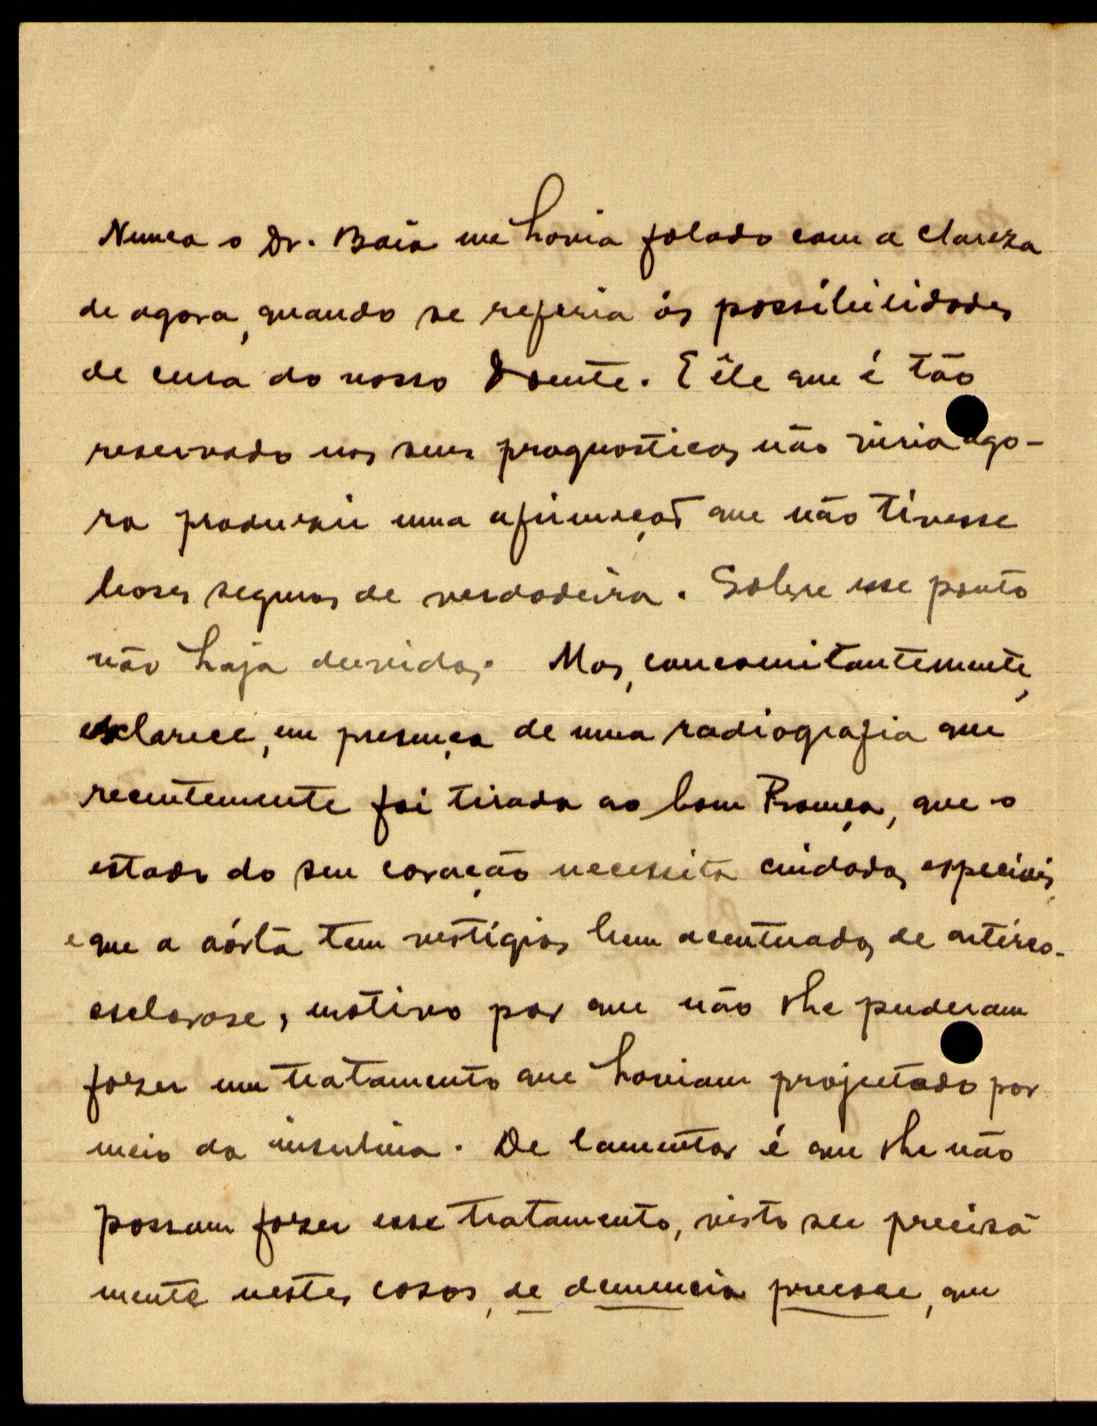 Nunca o Dr. Baia me havia falado com a clareza
de agora, quando se referia ás possibilidades
de cura do nosso Doente. E êle que é tão
reservado nos seus prognosticos não viria ago-
ra produzir uma afirmação que não tivesse
bases seguras de verdadeira. Sobre esse ponto
não haja duvidas. Mas, concomitantemente,
esclarece, em presença de uma radiografia que
recentemente foi tirada ao bom Proença, que o
estado do seu coração necessita cuidados especiais,
e que a aórta tem vestígios bem acentuados de artireo-
esclorose, motivo por que não lhe puderam
fazer um tratamento que haviam projectado por
meio da insulina. De lamentar é que lhe não
possam fazer esse tratamento, visto ser precisa-
mente nestes casos, de demencia precoce, que